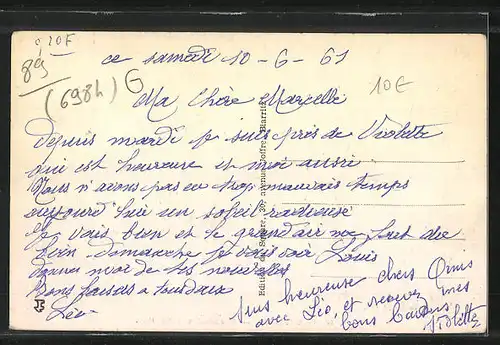 0,20F
89
(698h) G
ce samedi 10-6-61
10E
Ma Chère Marcelle
Depuis mardi je suis près de Violette
qui est heureuse et moi aussi
Nous n'avons pas eu trop mauvais temps
aujourd'hui un soleil radieuse
Je vais bien et le grand air me fait du
bien. demanche je vais voir Louis
donner moi de tes nouvelles
Bons baisers a tous deux
Léo
suis heureuse chers Amis
avec Léo, et recevez mes
bons baisers
Violette
Editions du Square, avenue Joffre, Biarritz